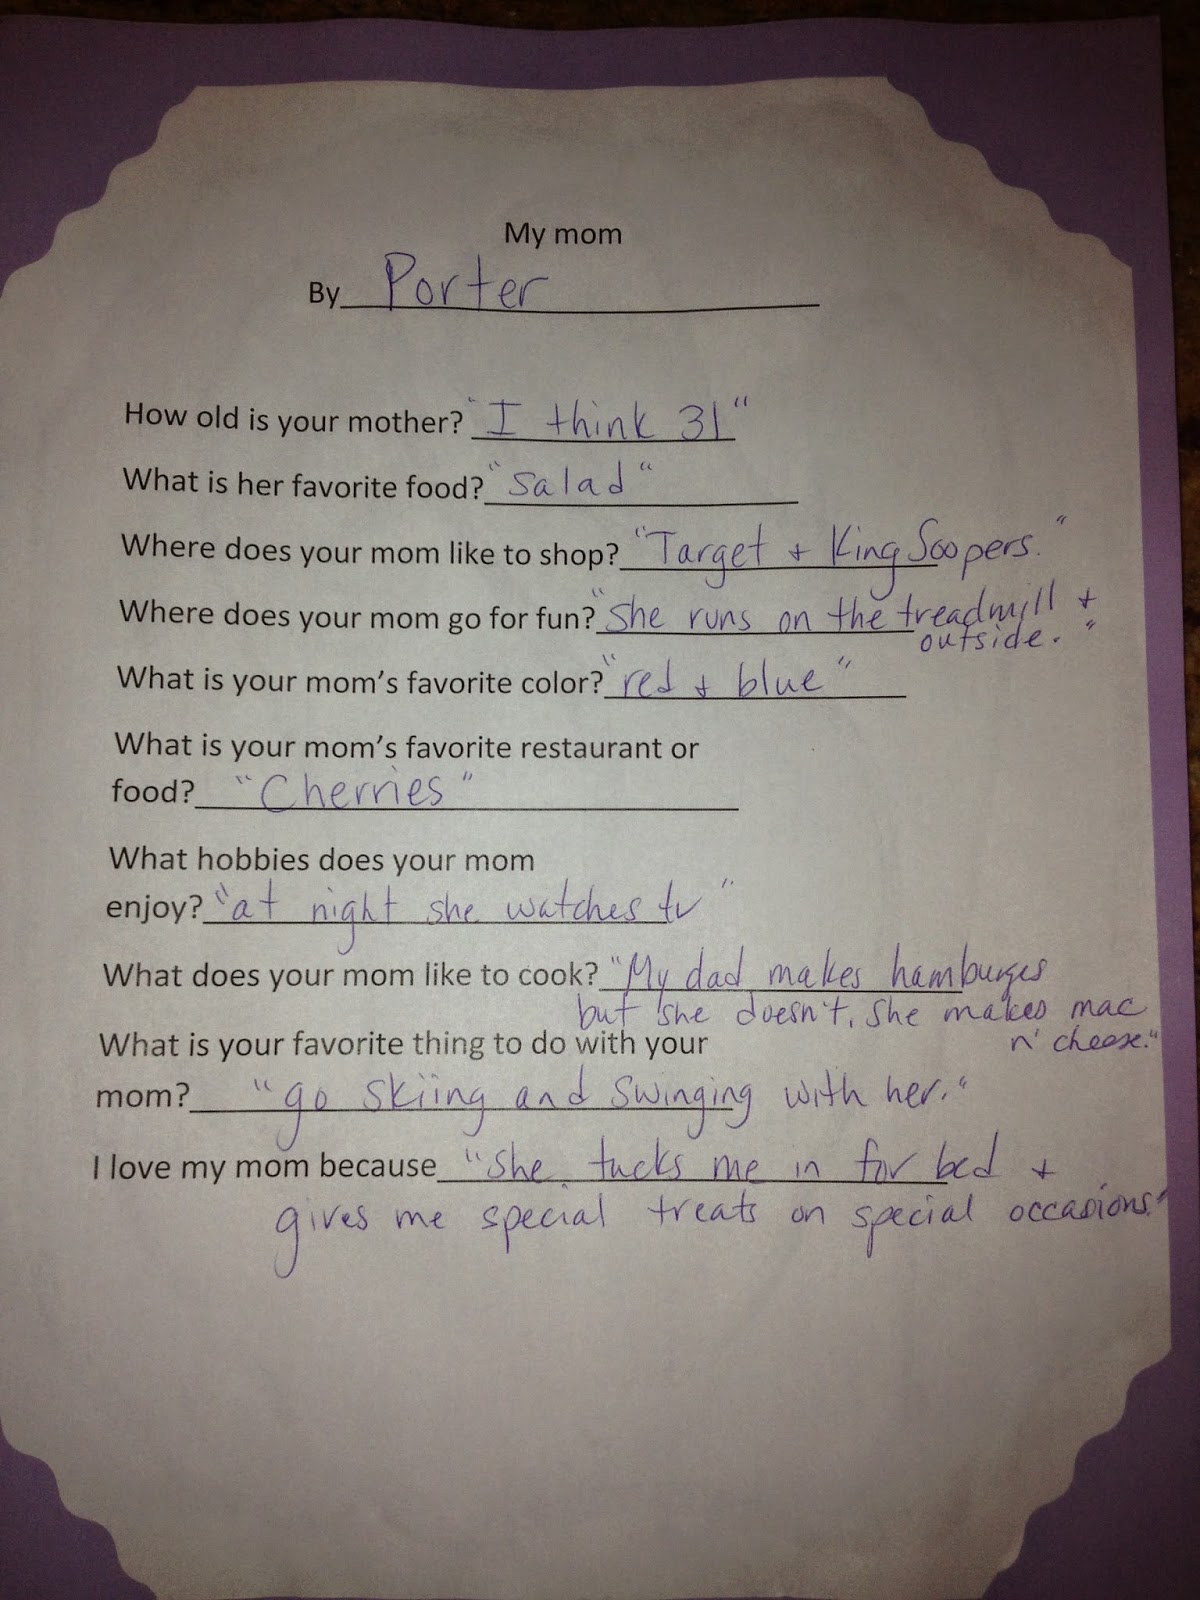 My mom
By Porter
How old is your mother? "I think 31"
What is her favorite food? "salad"
Where does your mom like to shop? "Target + King Soopers."
Where does your mom go for fun? "She runs on the treadmill +
outside."
What is your mom's favorite color? "red + blue"
What is your mom's favorite restaurant or
food? "Cherries"
What hobbies does your mom
enjoy? "at night she watches tv"
What does your mom like to cook? "My dad makes hamburges
but she doesn't. She makes mac
What is your favorite thing to do with your n' cheese."
mom? "go skiing and swinging with her."
I love my mom because "She tucks me in for bed +
gives me special treats on special occasions."